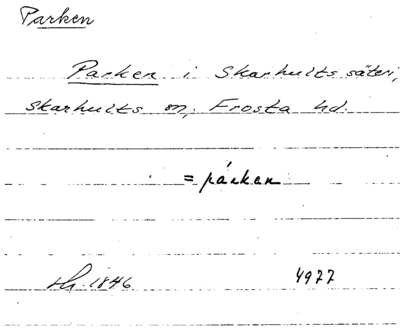 Parken
Parken i Skarhults säteri,
Skarhults sn, Frosta hd.
= párken
1846 4977